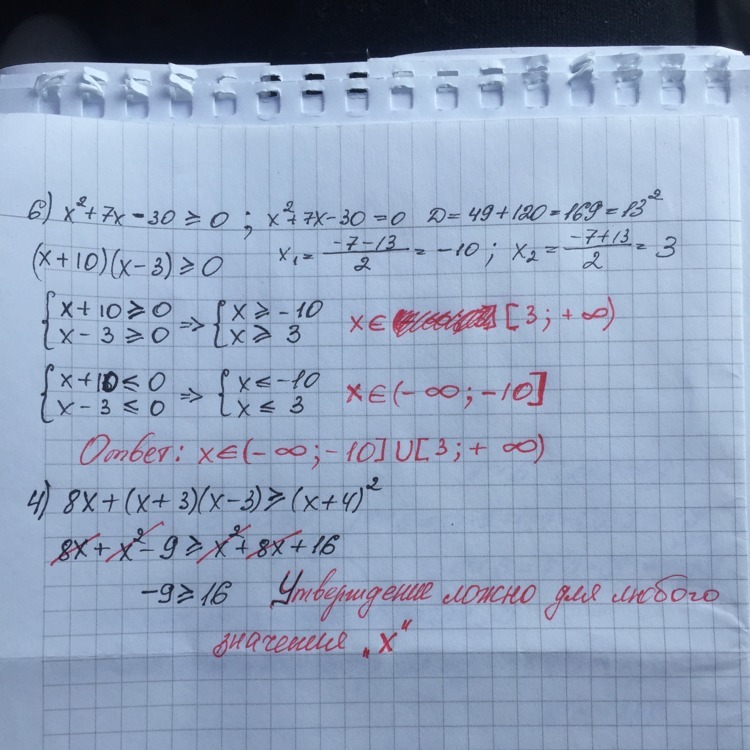 6) x²+7x-30≥0; x²+7x-30=0 D=49+120=169=13²
(x+10)(x-3)≥0 x₁=(-7-13)/2=-10; x₂=(-7+13)/2=3
{x+10≥0 ⇒ {x≥-10
{x-3≥0 {x≥3 x∈[3;+∞)
{x+10≤0 ⇒ {x≤-10
{x-3≤0 {x≤3 x∈(-∞;-10]
Ответ: x∈(-∞;-10]∪[3;+∞)
4) 8x+(x+3)(x-3)≥(x+4)²
8x+x²-9≥x²+8x+16
-9≥16 Утверждение ложно для любого
значения „x"